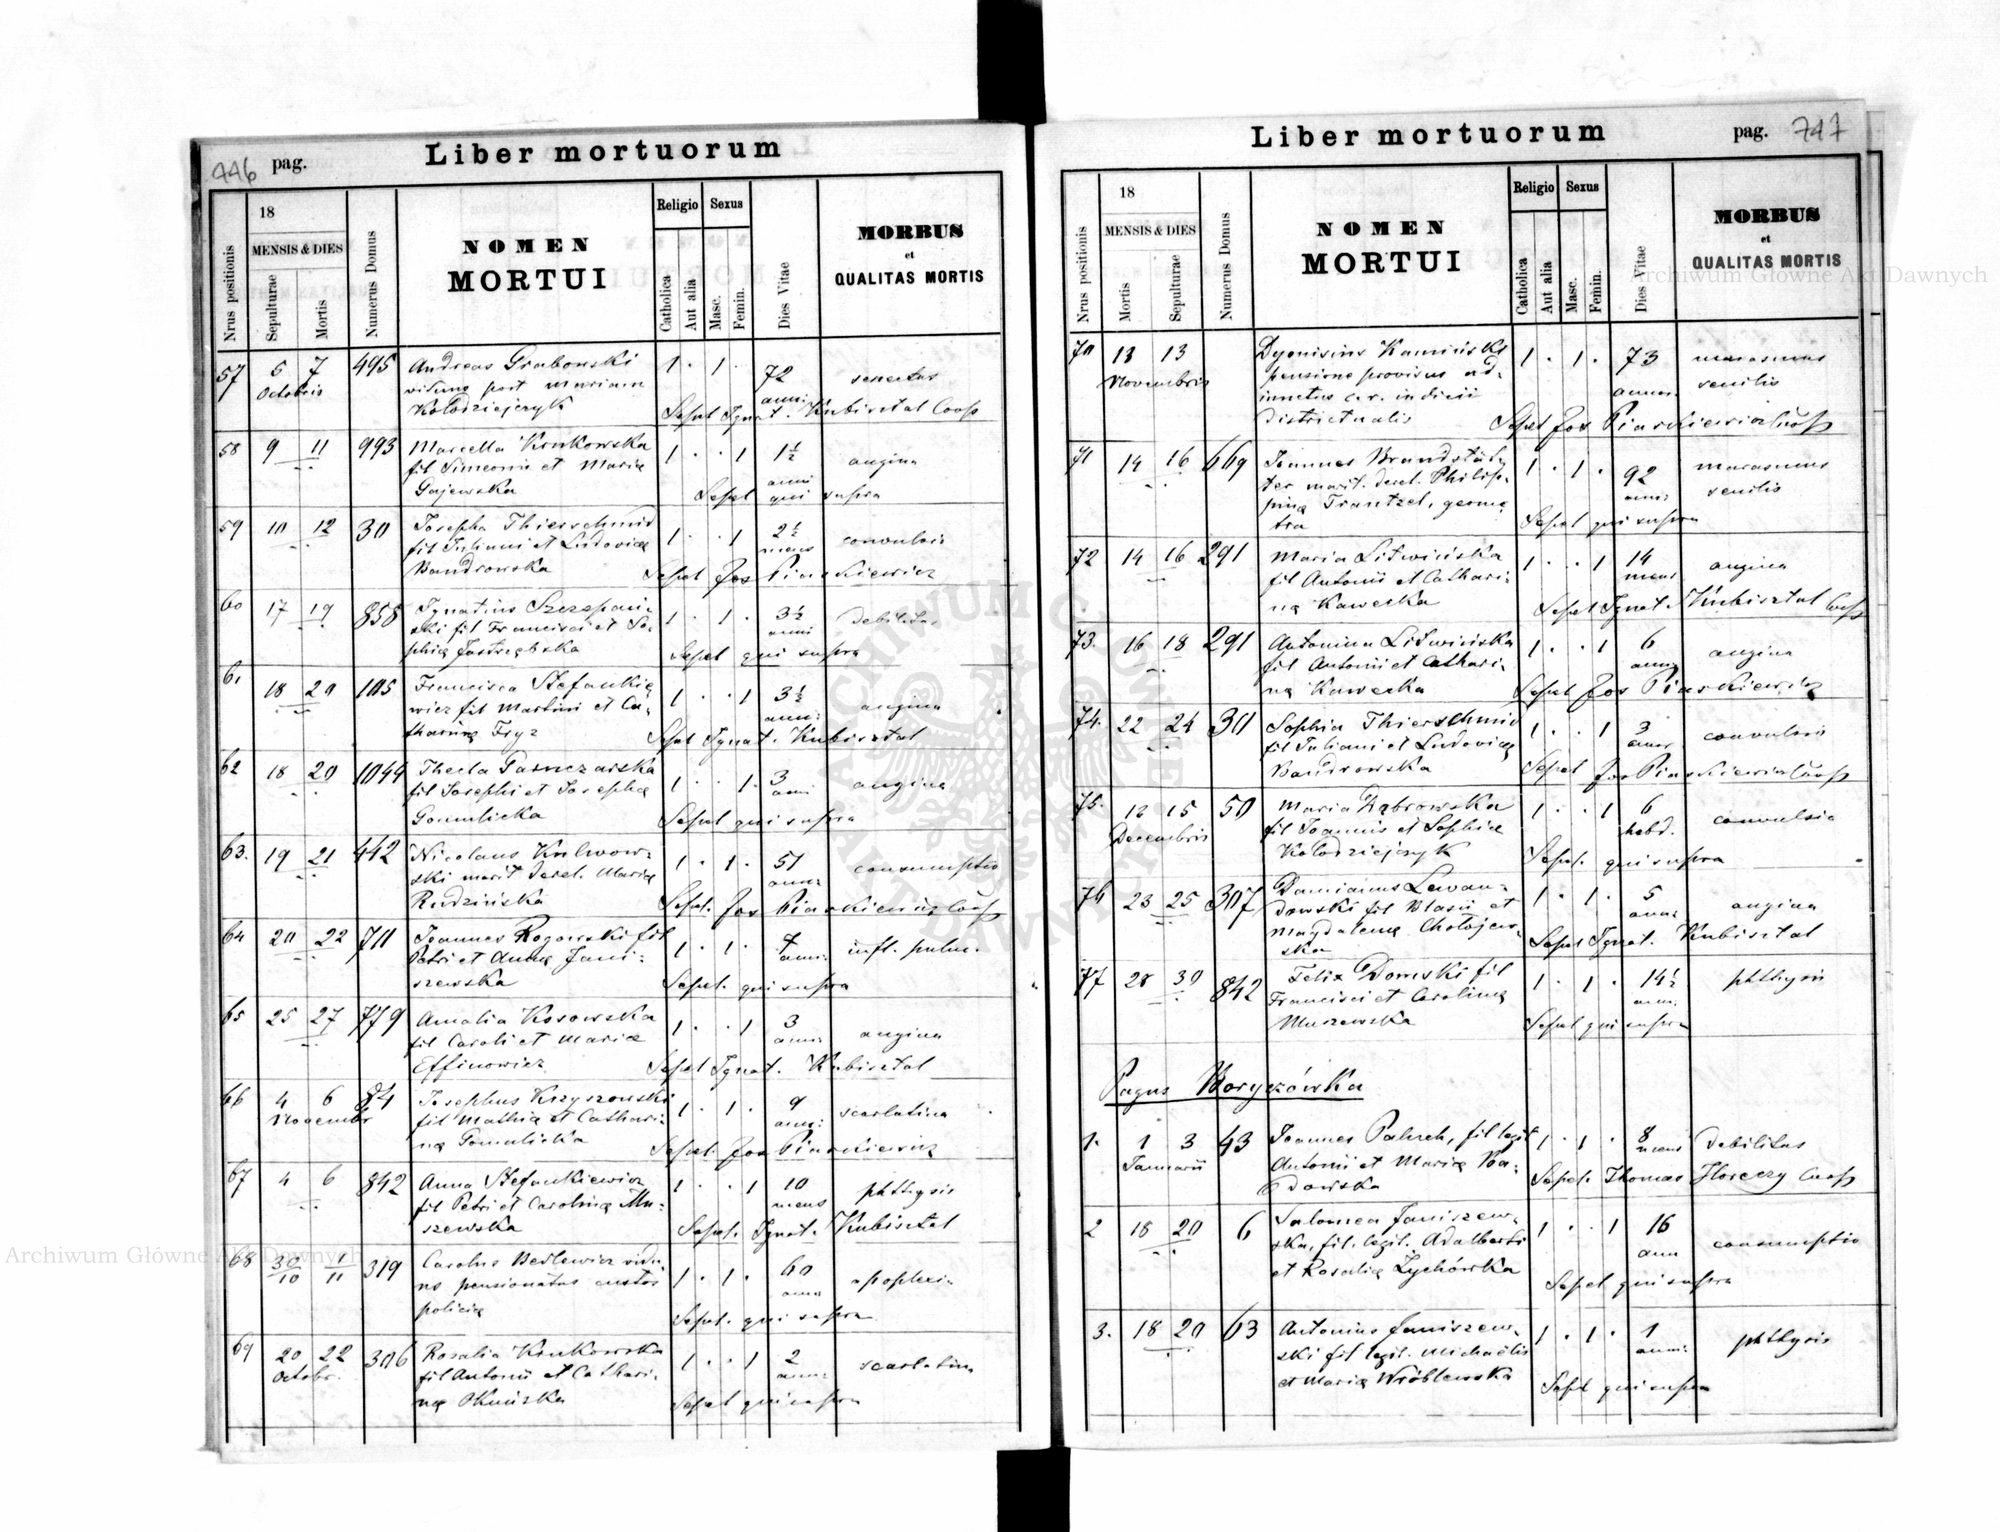 446 pag. Liber mortuorum
Nrus positionis
18
MENSIS & DIES
Sepulturae
Mortis
Numerus Domus
NOMEN
MORTUI
Religio
Catholica
Aut alia
Sexus
Masc.
Femin.
Dies Vitae
MORBUS
et
QUALITAS MORTIS
57 5 7 495 Andreas Grabowski 1 . 1 . 72 senectus
Octobris viduus post Mariam anni
Kołodziejczyk Sepel Ignat. Kubisztal Coop
58 9 11 993 Marcella Krukowska 1 . . 1 1½ angina
fil Simeonis et Mariæ anni
Gajewska Sepel qui supra
59 10 12 30 Josepha Thierschmid 1 . . 1 2½ convulsio
fil Juliani et Ludovicæ mens
Bandrowska Sepel Jos Piaskiewicz
60 17 19 858 Ignatius Szczepań- 1 . 1 . 3½ debilitas
ski fil Francisci et So- anni
phiæ Jastrzębska Sepel qui supra
61 18 20 105 Francisca Stefankie 1 . . 1 3½ angina
wicz fil Martini et Ca- ann:
tharinæ Fryz Sepel Ignat. Kubisztal
62 18 20 1044 Thecla 1 . . 1. 3 angina
fil Josephi et Josephæ anni
Gomulicka Sepel qui supra
63. 19 21 442 Nicolaus Kulwow- 1 . 1 . 51 consumptio
ski marit derel. Mariæ ann:
Rudzińska Sepel. Jos Piaskiewicz Coop
64 20 22 711 Joannes Rogowski fil 1 . 1 . 4 infl. pulm.
Petri et Annæ Jani- ann:
szewska Sepel. qui supra
65 25 27 779 Amalia Kosowska 1 . . 1 3 angina
fil Caroli et Mariæ ann:
Effinowicz Sepel Ignat. Kubisztal
66 4 6 84 Josephus Krzyszowski 1 . 1 . 9 scarlatina
Novembr fil Mathiæ et Cathari- ann:
næ Gomulicka Sepel. Jos Piaskiewicz
67 4 6 842 Anna Stefankiewicz 1 . . 1 10 phthysis
fil Petri et Carolinæ Mu- mens
szewska Sepel. Ignat. Kubisztal
68 30/10 1/11 319 Carolus Bedlewicz vidu- 1 . 1 . 60 apoplexia
us pensionatus custos ann
policiæ Sepel. qui supra
69 20 22 306 Rosalia Krukowska 1 . . 1 2 scarlatina
Octobr. fil Antonii et Cathari- ann:
næ Okmińska Sepel qui supra
Liber mortuorum pag. 747
Nrus positionis
18
MENSIS & DIES
Mortis
Sepulturae
Numerus Domus
NOMEN
MORTUI
Religio
Catholica
Aut alia
Sexus
Masc.
Femin.
Dies Vitae
MORBUS
et
QUALITAS MORTIS
70 13 Dyonisius Kamiński 1 . 1 . 73 marasmus
Novembris pensione provisus ad- senilis
iunctus c. r. indicii annor.
districtualis Sepel Jos Piaskiewicz Coop
71 14 16 669 Joannes Brandstät- 1 . 1 . 92 marasmus
ter marit. derel. Philip- ann: senilis
pinæ Frantzel, geome
tra Sepel qui supra
72 14 16 291 Maria Litwińska 1 . . 1 14 angina
fil Antonii et Cathari- mens
næ Kawecka Sepel Ignat. Kubisztal Coop
73. 16 18 291 Antonina Litwińska 1 . . 1 6 angina
fil Antonii et Cathari- ann:
næ Kawecka Sepel Jos Piaskiewicz
74. 22 24 30 Sophia Thierschmid 1 . . 1 3 convulsio
fil Juliani et Ludovicæ annor
Bandrowska Sepel Jos Piaskiewicz Coop
75. 15 50 Maria Dąbrowska 1 . . 1 6 convulsio
Decembris fil Joannis et Sophiæ hebd.
Kołodziejczyk Sepel. qui supra
76 23 25 307 Damianus Lewan- 1 . 1 . 5 angina
dowski fil Blasii et ann:
Magdalenæ Chołojew-
ska Sepel Ignat. Kubisztal
77 28 30 842 Felix Domski fil 1 . 1 . 14½ phthysis
Francisci et Carolinæ ann:
Muszewska Sepel qui supra
Pagus Koryszówka
1. 1 3 43 Joannes Paluch, fil legit 1 . 1 . 8 Debilitas
Januarii Antonii et Mariæ Ba- mens
dowska Sepel. Thomas Florczy Coop
2 18 20 6 Salomea Janiszew- 1 . . 1 16 consumptio
ska, fil. legit. Adalberti ann
et Rosaliæ Żychówka Sepel qui supra
3. 18 20 63 Antonius Janiszew- 1 . 1 . 1 phthysis
ski fil legit. Michaelis anni:
et Mariæ Wróblewska Sepel qui supra
Archiwum Główne Akt Dawnych
Archiwum Główne Akt Dawnych
ARCHIWUM GŁÓWNE AKT DAWNYCH